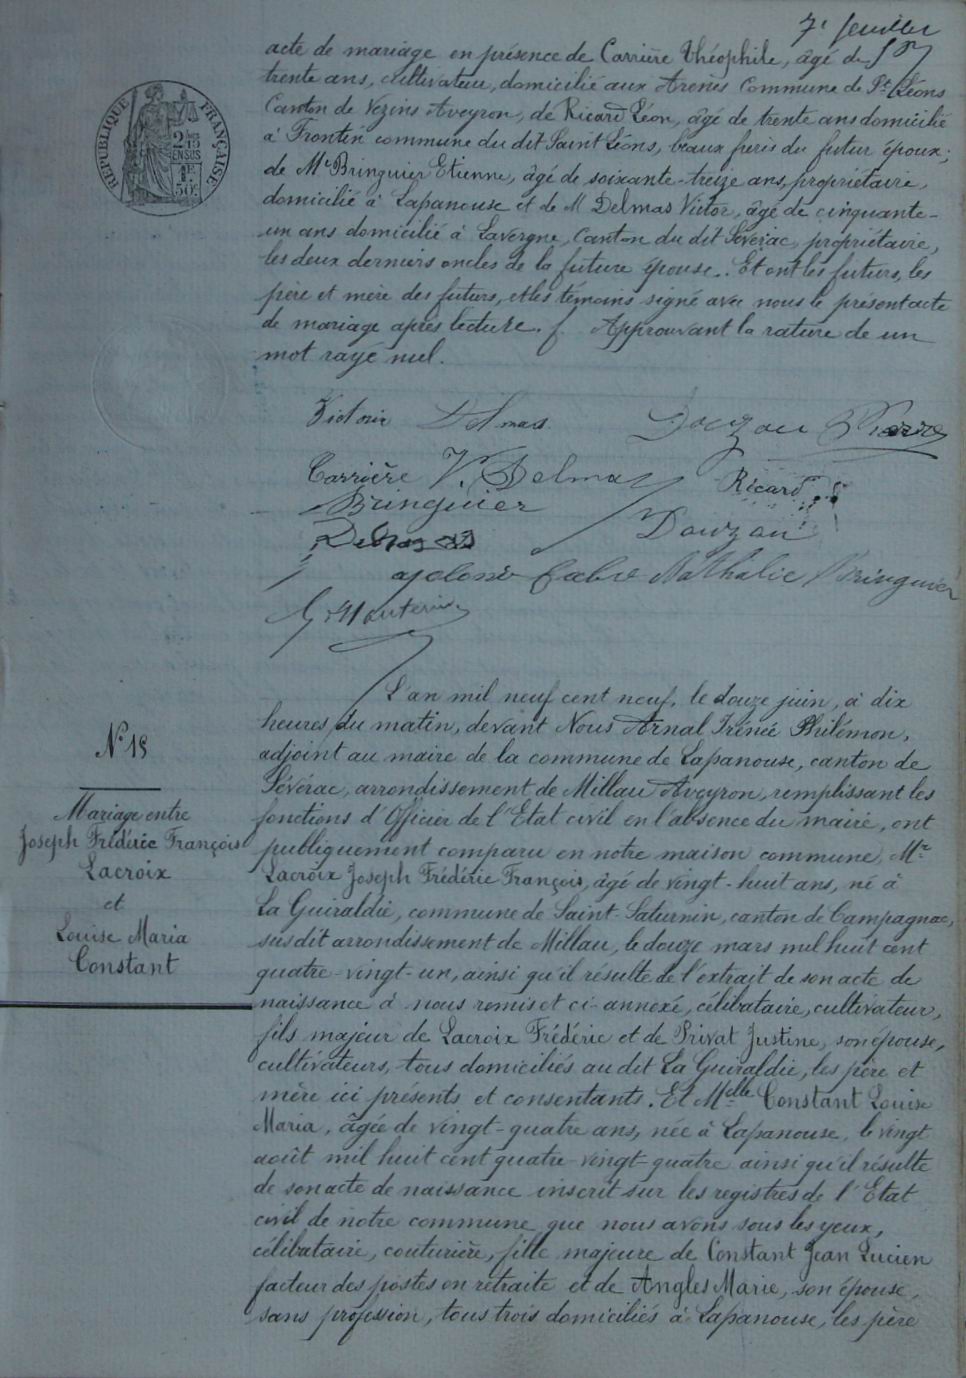 7e feuillet
acte de mariage en présence de Carrière Théophile, âgé de
trente ans, cultivateur, domicilié aux Arenès Commune de St Léons
Canton de Vezins Aveyron, de Ricard Léon, âgé de trente ans domicilié
à Frontin commune du dit Saint Léons, beaux frères du futur époux;
de Mr Bringuier Etienne, âgé de soixante-treize ans, propriétaire,
domicilié à Lapanouse et de M Delmas Victor, âgé de cinquante-
un ans domicilié à Lavergne, Canton du dit Séverac, propriétaire,
les deux derniers oncles de la future épouse. Et ont les futurs, les
père et mère des futurs, et les témoins signé avec nous le présent acte
de mariage après lecture. Approuvant la rature de un
mot rayé nul.
REPUBLIQUE FRANÇAISE
2/10 ENSUS
1F 50c
Victorie Delmas Douzou Pierre
Carrière V. Delmas Ricard
Bringuier Douzou
Delmas
Fabre Nathalie Bringuier
L'an mil neuf cent neuf, le douze juin, à dix
heures du matin, devant Nous Arnal Irénée Philémon,
adjoint au maire de la commune de Lapanouse, canton de
Sévérac, arrondissement de Millau Aveyron, remplissant les
fonctions d'Officier de l'Etat civil en l'absence du maire, ont
publiquement comparu en notre maison commune, Mr
Lacroix Joseph Frédéric François, âgé de vingt-huit ans, né à
La Guiraldie, commune de Saint-Saturnin, canton de Campagnac,
susdit arrondissement de Millau, le douze mars mil huit cent
quatre-vingt-un, ainsi qu'il résulte de l'extrait de son acte de
naissance à nous remis et ci-annexé, célibataire, cultivateur,
fils majeur de Lacroix Frédéric et de Privat Justine, son épouse,
cultivateurs, tous domiciliés au dit La Guiraldie, les père et
mère ici présents et consentants. Et Melle Constant Louise
Maria, âgée de vingt-quatre ans, née à Lapanouse, le vingt
août mil huit cent quatre-vingt-quatre ainsi qu'il résulte
de son acte de naissance inscrit sur les registres de l'Etat
civil de notre commune que nous avons sous les yeux,
célibataire, couturière, fille majeure de Constant Jean Lucien
facteur des postes en retraite et de Angles Marie, son épouse,
sans profession, tous trois domiciliés à Lapanouse, les père
N° 18
Mariage entre
Joseph Frédéric François
Lacroix
et
Louise Maria
Constant